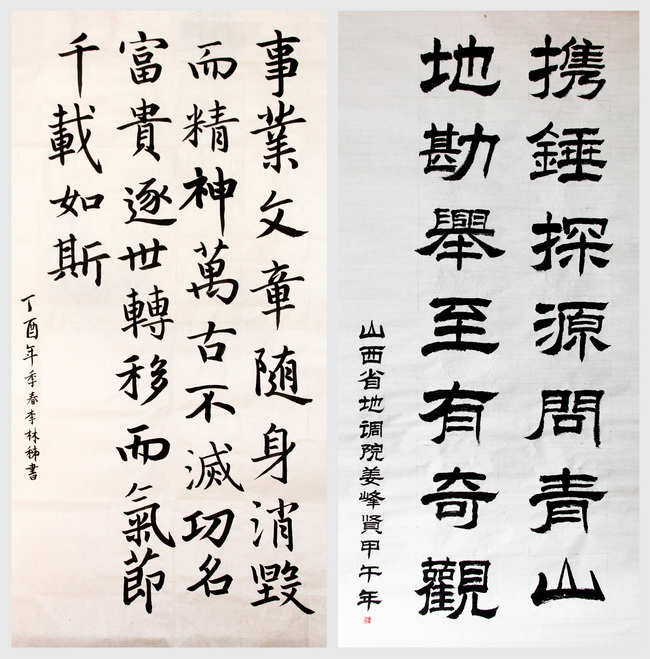 事業文章随身消毀
而精神萬古不滅功名
富貴逐世轉移而氣節
千載如斯
丁酉年季春李林書
携錘探源問青山
地勘舉至有奇觀
山西省地调院姜峰贤甲午年